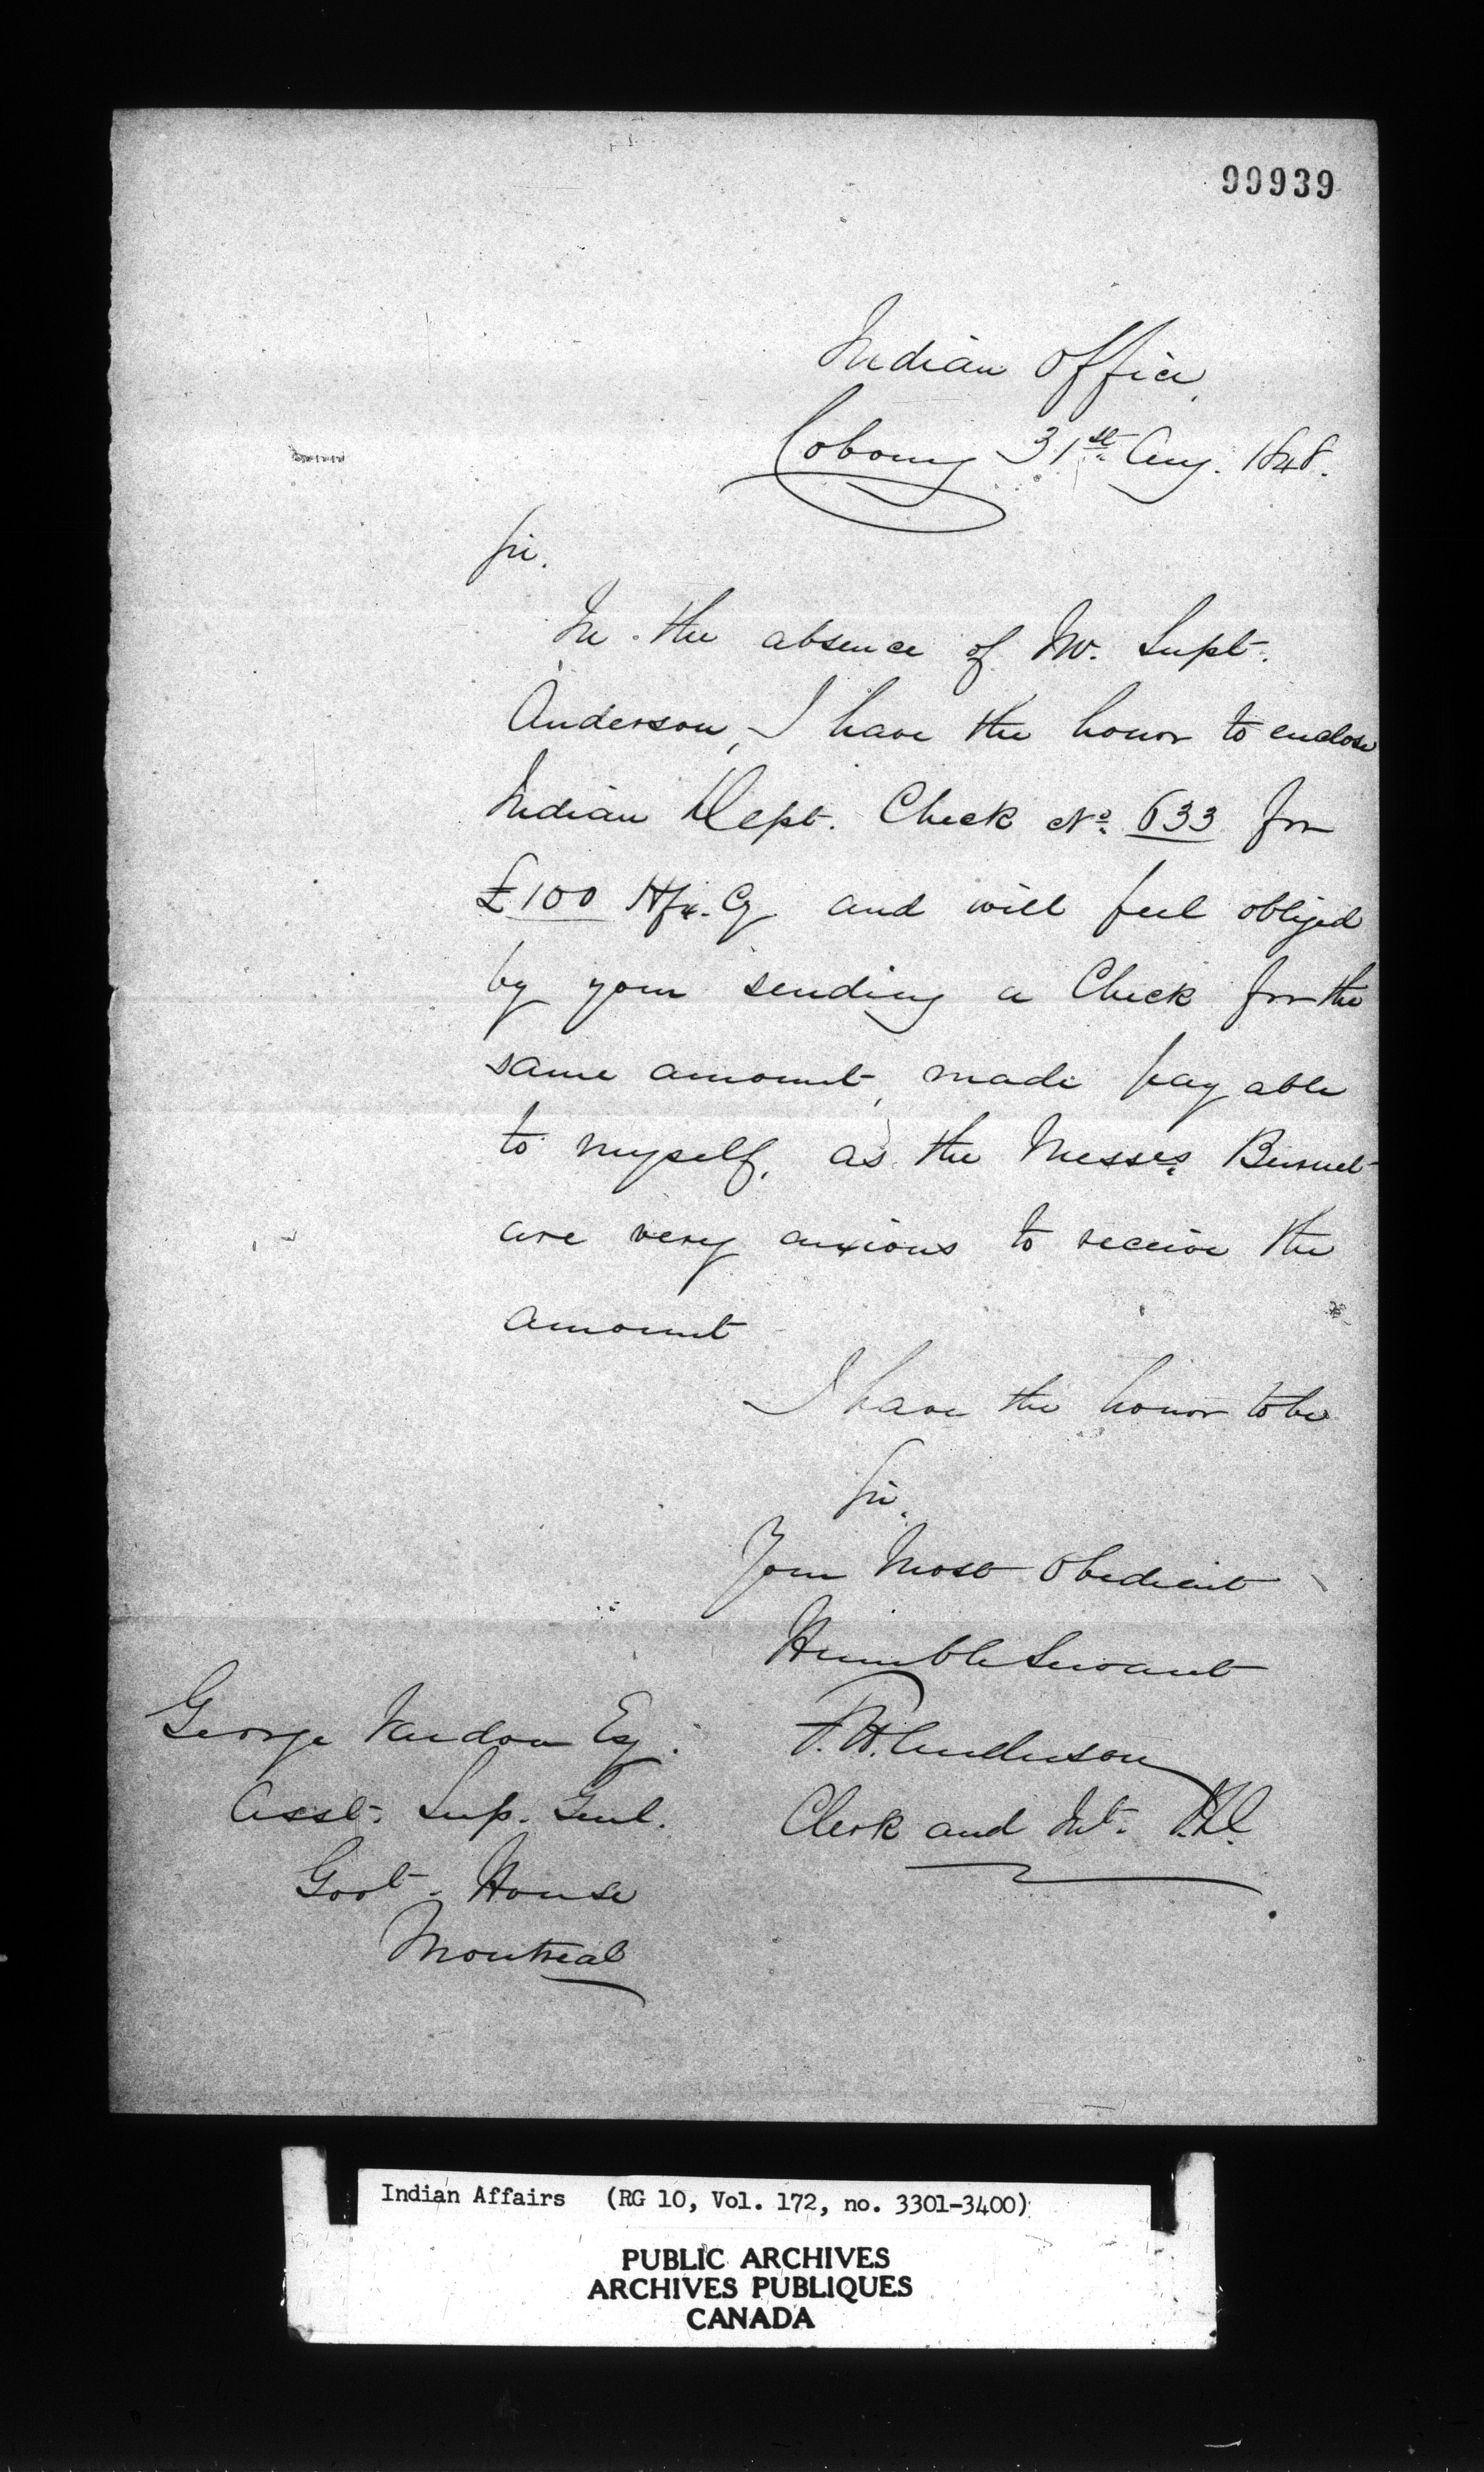 99939
Indian Office,
Cobourg 31st Aug. 1848.
Sir.
In the absence of Mr. Supt.
Anderson, I have the honor to enclose
Indian Dept. Check No. 633 for
£100 Hfx. Cy and will feel obliged
by your sending a Check for the
same amount, made payable
to myself, as the Messrs. Burnet
are very anxious to receive the
amount
I have the honor to be
Sir,
Your Most Obedient
Humble Servant
George Vardon Esq.
Asst. Sup. Genl.
Govt. House
Montreal
T. H. Anderson
Clerk and Int.
Indian Affairs (RG 10, Vol. 172, no. 3301-3400)
PUBLIC ARCHIVES
ARCHIVES PUBLIQUES
CANADA